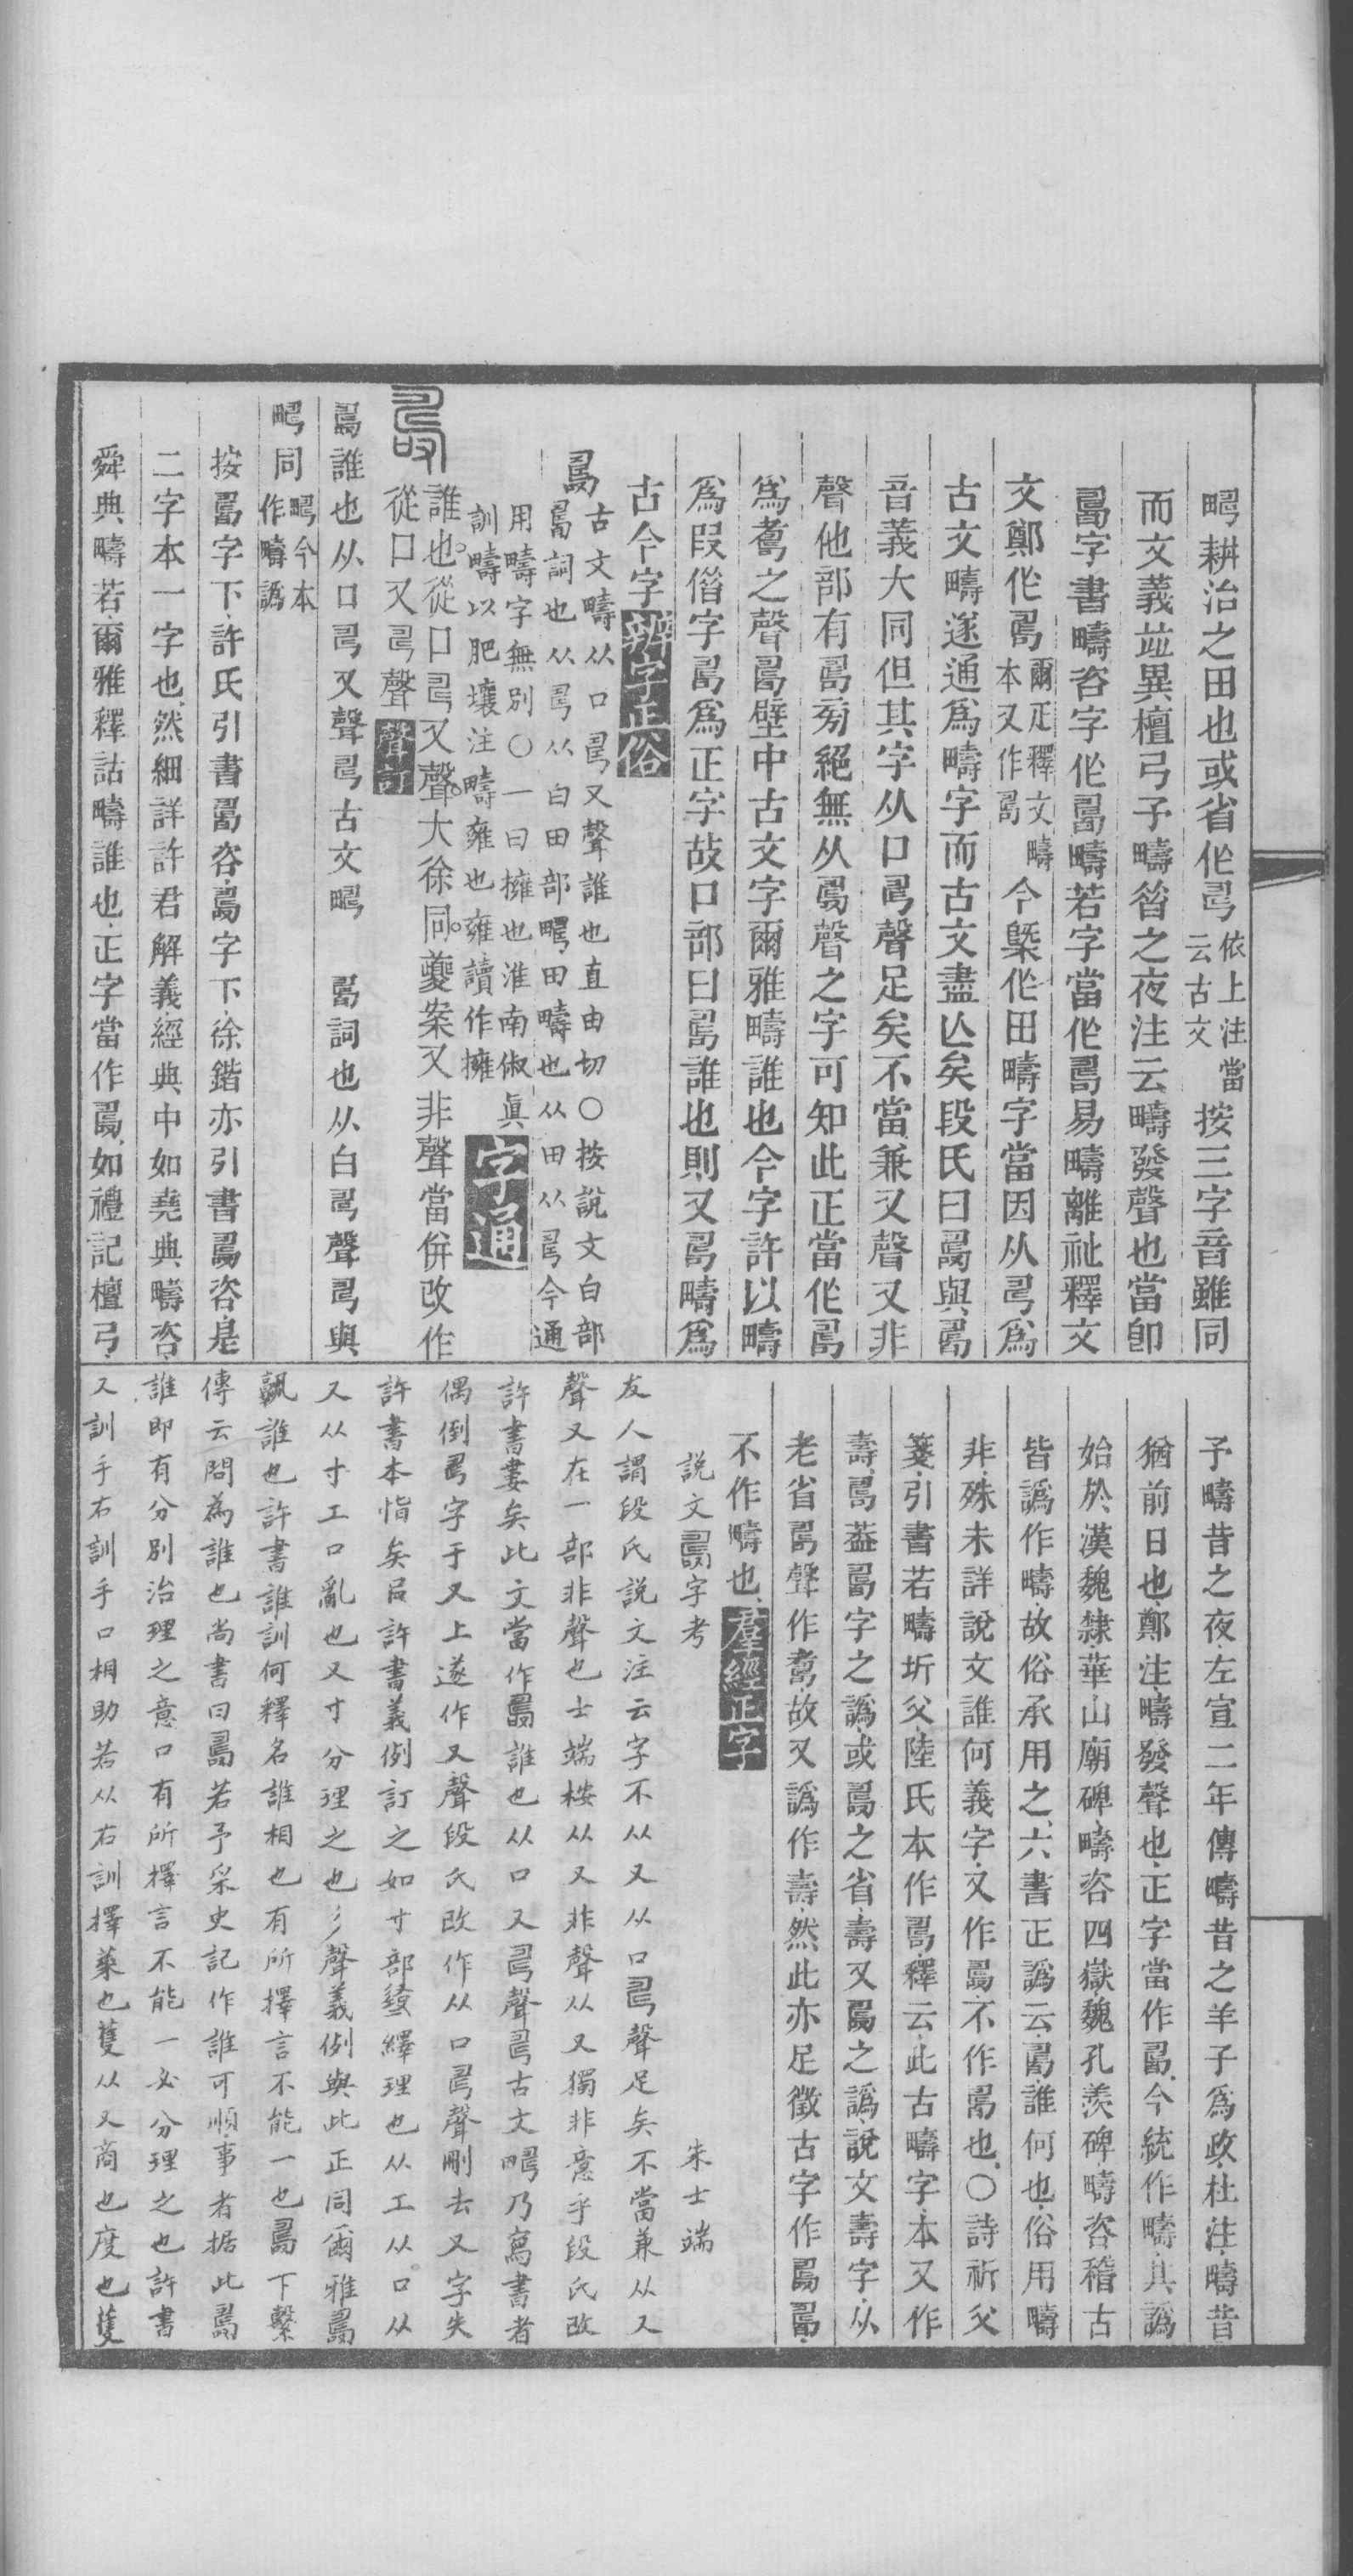 𤲮耕治之田也或省作𢏚依上注當云古文按三字音雖同
而文義竝異檀弓予疇昝之夜注云疇發聲也當卽
𠷎字書疇咨字作𠷎疇若字當作𠷎易疇離祉釋文
文鄭作𠷎爾疋釋文疇本又作𠷎今槩作田疇字當因从𢏚爲
古文疇遂通爲疇字而古文盡亾矣段氏曰𠷎與𠷎
音義大同但其字从口𢏚聲足矣不當兼又聲又非
聲他部有𠷎𠭯絕無从𠷎聲之字可知此正當作𠷎
爲𦓂之聲𠷎壁中古文字爾雅疇誰也今字許以疇
爲叚借字𠷎爲正字故口部曰𠷎誰也則又𠷎疇爲
古今字辨字正俗
𠷎古文疇从口𢏚又聲誰也直由切○按說文白部
𠷎詞也从𢏚从白田部𤲮田疇也从田从𢏚今通
用疇字無別○一曰擁也淮南俶真
訓疇以肥壤注疇雍也雍讀作擁字通
誰也從口𢏚又聲大徐同夔案又非聲當併改作
從口又𢏚聲聲訂
𠷎誰也从口𢏚又聲𢏚古文𤲮　𠷎詞也从白𢏚聲𢏚與
𤲮同𤲮今本作疇譌
按𠷎字下許氏引書𠷎咨𠷎字下徐鍇亦引書𠷎咨是
二字本一字也然細詳許君解義經典中如堯典疇咨
舜典疇若爾雅釋詁疇誰也正字當作𠷎如禮記檀弓
予疇昔之夜左宣二年傳疇昔之羊子爲政杜注疇昔
猶前日也鄭注疇發聲也正字當作𠷎今統作疇其譌
始於漢魏隸華山廟碑疇咨四嶽魏孔羨碑疇咨稽古
皆譌作疇故俗承用之六書正譌云𠷎誰何也俗用疇
非殊未詳說文誰何義字又作𠷎不作𠷎也○詩祈父
箋引書若疇圻父陸氏本作𠷎釋云此古疇字本又作
壽𠷎葢𠷎字之譌或𠷎之省壽又𠷎之譌說文壽字从
老省𠷎聲作𦓂故又譌作壽然此亦足徵古字作𠷎𠷎
不作疇也羣經正字
說文𠷎字考　朱士端
友人謂段氏說文注云字不从又从口𢏚聲足矣不當兼从又
聲又在一部非聲也士端按从又非聲从又獨非意乎段氏改
許書婁矣此文當作𠷎誰也从口又𢏚聲𢏚古文𤲮乃寫書者
偶倒𢏚字于又上遂作又聲段氏改作从口𢏚聲刪去又字失
許書本恉矣㠯許書義例訂之如寸部𡬶繹理也从工从口从
又从寸工口亂也又寸分理之也彡聲義例與此正同爾雅𠷎
孰誰也許書誰訓何釋名誰相也有所擇言不能一也𠷎下繫
傳云問為誰也尚書曰𠷎若予采史記作誰可順事者据此𠷎
誰即有分別治理之意口有所擇言不能一必分理之也許書
又訓手右訓手口相助若从右訓擇菜也䕶从又商也度也䕶